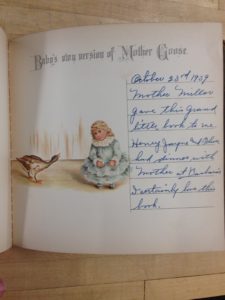 Baby's own version of Mother Goose
October 23rd 1909
Mother Miller
gave this grand
little book to me
Honey Jacque and
had dinner with
Mother at
I certainly love this
book.